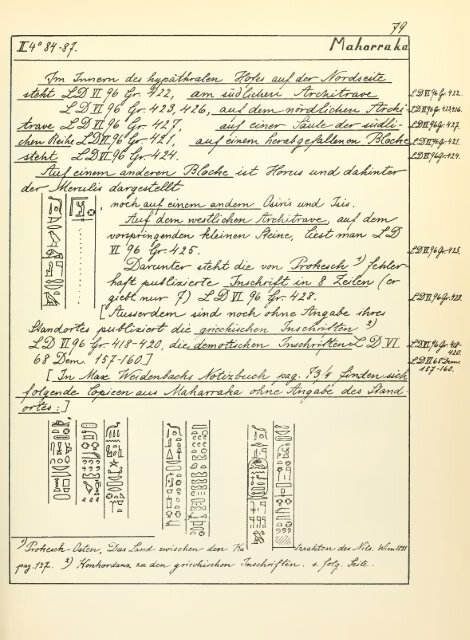 79
II 4° 84-87. Mahorraka
Im Innern des hypäthralen Hofes auf der Nordseite
steht LD VI 96 Gr. 422, am südlichen Architrave LD VI 96 Gr. 422.
LD VI 96 Gr. 423, 426, auf dem nördlichen Archi- LD VI 96 Gr. 423,426.
trave LD VI 96 Gr. 427, auf einer Säule der südli- LD VI 96 Gr. 427.
chen Reihe LD VI 96 Gr. 421, auf einem herabgefallenen Blocke LD VI 96 Gr. 421.
steht LD VI 96 Gr. 424. LD VI 96 Gr. 424.
Auf einem anderen Blocke ist Horus und dahinter
der Merulis dargestellt
noch auf einem andern Osiris und Isis.
Auf dem westlichen Architrave, auf dem
vorspringenden kleinen Steine, liest man LD
VI 96 Gr. 425. LD VI 96 Gr. 425.
Darunter steht die von Prokesch 1) fehler-
haft publizierte Inschrift in 8 Zeilen (er
giebt nur 7) LD VI 96 Gr. 428. LD VI 96 Gr. 428.
[Ausserdem sind noch ohne Angabe ihres
Standortes publiciert die griechischen Inschriften 2)
LD VI 96 Gr. 418-420, die demotischen Inschriften LD VI. LD VI 96 Gr. 418-420.
68 Dem 157-160.] LD VI 68 Dem 157-160.
[In Max Weidenbachs Notizbuch, pag. 83/4 finden sich
folgende Copieen aus Maharraka ohne Angabe des Stand
ortes:]
1) Prokesch-Osten, Das Land zwischen den Ka tarakten des Nils. Wien 1831
pag. 127. 2) Konkordanz zu den griechischen Inschriften s. folg. Seite.